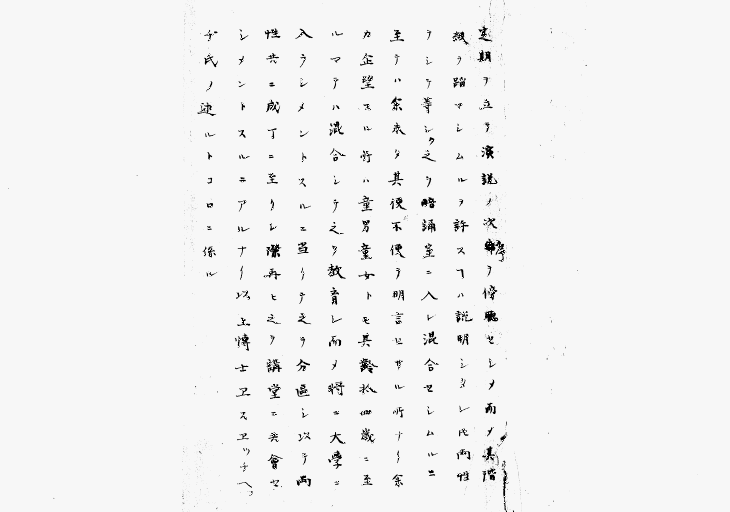 定期ヲ立テ演説ノ次序ヲ傍聴セシメ而メ其階
級ヲ踏マシムルヲ許スヿハ説明シタレ𪜈両性
ヲシテ等シク之ヲ暗誦室ニ入レ混合セシムルニ
至テハ余未タ其便不便ヲ明言セサル所ナリ余
カ企望スル所ハ童男童女トモ其齢拾四歳ニ至
ルマテハ混合シテ之ヲ教育シ而メ将ニ大学ニ
入ラシメントスルニ当リテ之ヲ分區シ以テ両
性共ニ成丁ニ至リシ際再ヒ之ヲ講堂ニ共會セ
シメントスルニアルナリ以上博士ヱスヱッチヘッ
チ氏ノ述ルトコロニ係ル